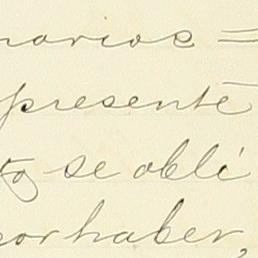 narios =
presente
to se obli
por haber,